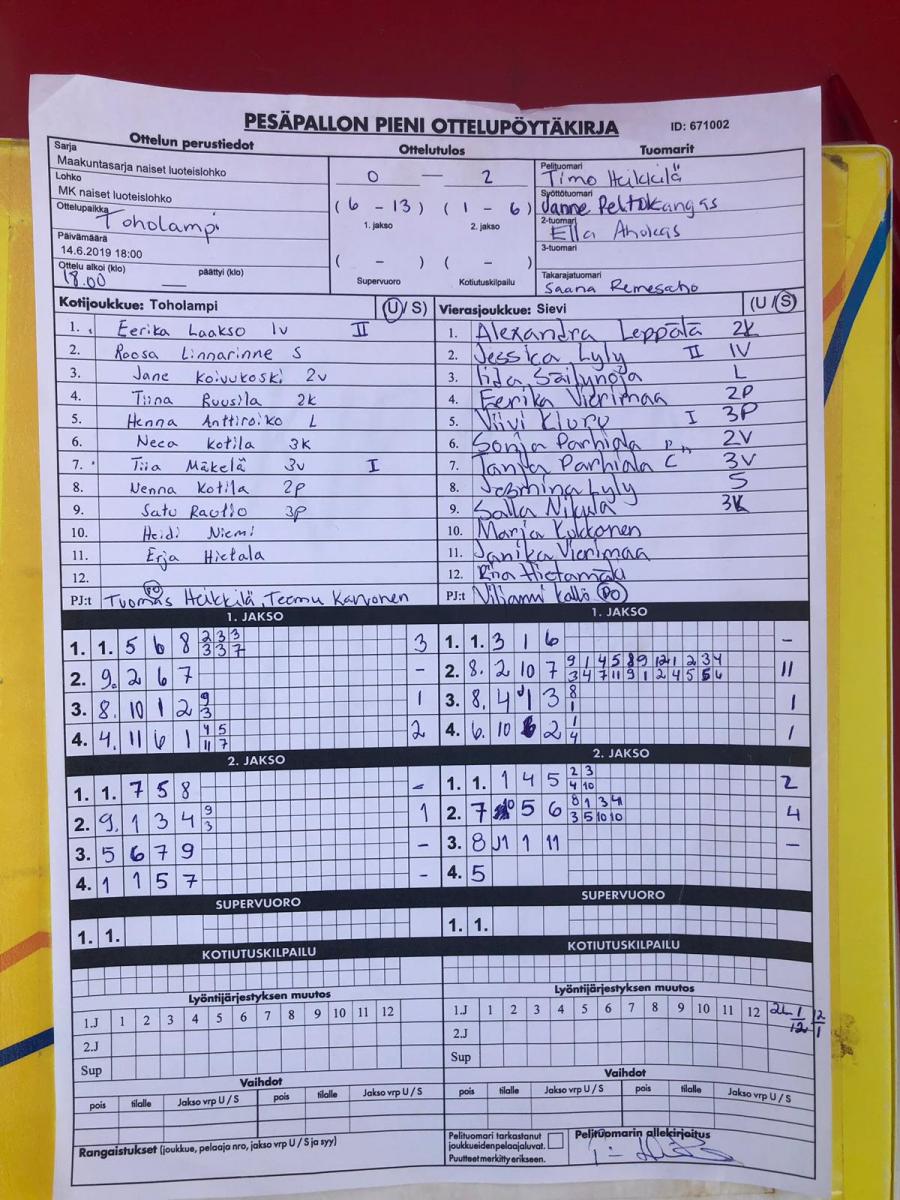 PESÄPALLON PIENI OTTELUPÖYTÄKIRJA ID: 671002
Ottelun perustiedot
Sarja
Maakuntasarja naiset luoteislohko
Lohko
MK naiset luoteislohko
Ottelupaikka
Toholampi
Päivämäärä
14.6.2019 18:00
Ottelu alkoi (klo) päättyi (klo)
18.00 —
Ottelutulos
0 — 2
(6 - 13) (1 - 6)
1. jakso 2. jakso
( - ) ( - )
Supervuoro Kotiutuskilpailu
Tuomarit
Pelituomari
Timo Heikkilä
Syöttötuomari
Janne Peltokangas
2-tuomari
Ella Ahokas
3-tuomari
Takarajatuomari
Saana Remesaho
Kotijoukkue: Toholampi (U / S)
1. Eerika Laakso 1v II
2. Roosa Linnarinne S
3. Jane Koivukoski 2v
4. Tiina Ruusila 2k
5. Henna Anttiroiko L
6. Neea Kotila 3k
7. Tiia Mäkelä 3v I
8. Nenna Kotila 2p
9. Satu Rautio 3p
10. Heidi Niemi
11. Erja Hietala
12.
PJ:t Tuomas Heikkilä, Teemu Karvonen
Vierasjoukkue: Sievi (U / S)
1. Alexandra Leppälä 2K
2. Jessica Lyly II 1V
3. Iida Säilynoja L
4. Eerika Vierimaa 2P
5. Viivi Kluru I 3P
6. Sonja Parhiala 2V
7. Tanja Parhiala "C" 3V
8. Jasmina Lyly S
9. Salla Nikula 3K
10. Marja Kukkonen
11. Janika Vierimaa
12. Hietamäki
PJ:t Viljami Kallo PO
1. JAKSO
1. 1. 5 6 8 2 3 3 3
3 3 7
2. 9. 2 6 7 -
3. 8. 10 1 2 9 1
3
4. 4. 11 6 1 4 5 2
11 7
1. JAKSO
1. 1. 3 1 6 -
2. 8. 2 10 7 9 1 4 5 8 9 12 1 2 3 4 11
3 4 7 11 9 1 2 4 5 5 6
3. 8. 4 1 3 8 1
1
4. 6. 10 2 1 1
4
2. JAKSO
1. 1. 7 5 8 -
2. 9. 1 3 4 9 1
3
3. 5 6 7 9 -
4. 1 1 5 7 -
2. JAKSO
1. 1. 1 4 5 2 3 2
4 10
2. 7 10 5 6 8 1 3 4 4
3 5 10 10
3. 8 1 11 -
4. 5
SUPERVUORO
1. 1.
SUPERVUORO
1. 1.
KOTIUTUSKILPAILU
KOTIUTUSKILPAILU
Lyöntijärjestyksen muutos
1.J 1 2 3 4 5 6 7 8 9 10 11 12
2.J
Sup
Lyöntijärjestyksen muutos
1.J 1 2 3 4 5 6 7 8 9 10 11 12 1/12 12/1
2.J
Sup
Vaihdot
pois tilalle Jakso vrp U / S pois tilalle Jakso vrp U / S
Vaihdot
pois tilalle Jakso vrp U / S pois tilalle Jakso vrp U / S
Rangaistukset (joukkue, pelaaja nro, jakso vrp U / S ja syy)
Pelituomari tarkastanut
joukkueidenpelaajaluvat.
Puutteet merkitty erikseen.
Pelituomarin allekirjoitus